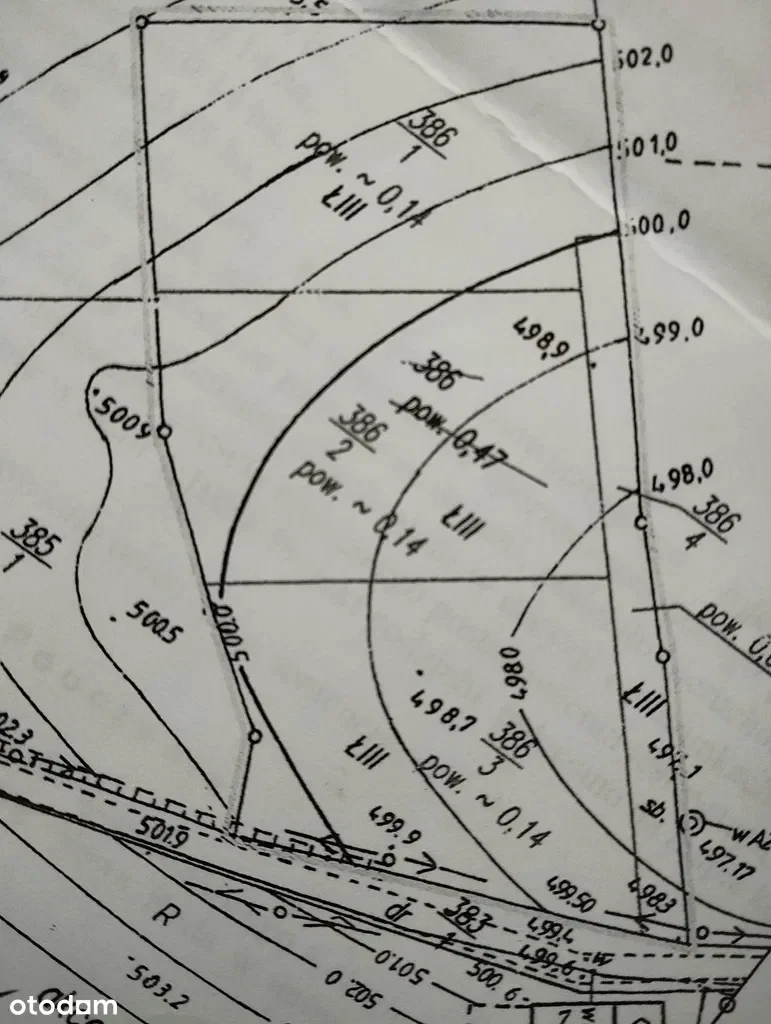 502,0
386
1
pow. ~ 0,14
ŁIII
501,0
500,0
499,0
498,9
386
pow. 0,47
386
2
pow. ~ 0,14
ŁIII
500,9
498,0
386
4
385
1
500.5
500,0
pow. 0,
498,0
ŁIII
498,7
386
3
pow. ~ 0,14
ŁIII
sb.
497.17
501.9
499.9
499.50
498.3
R
dr
383
499.4
499.6
501.0
500.6
502.0
503.2
otodom